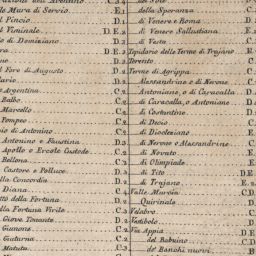 delle Mura di Servio. E.1
del Pincio D.1
del Viminale D.E.2
di Domiziano D.2
D.E.2
D.2
Foro di Augusto D.2
Argentina C.2
Balbo. C.2
Marcello C.2
Pompeo C.2
di Antonino C.2
Antonino e Faustina D.2
Apollo e Ercole Custode. C.2
Bellona C.2
Castore e Polluce D.2
della Concordia D.2
Diana C.2
della Fortuna D.2
della Fortuna Virile C.2
Giove Tonante D.2
Giunone C.2
Giuturna C.2
Matuta C.2
della Speranza
di Venere e Roma D.
di Venere Sallustiana E.
di Vesta C.
Tepidario delle Terme di Trajano E.
Terento C.
Terme di Agrippa C.
Alessandrine e di Nerone C.
Antoniane, o di Caracalla D.
di Caracalla, o Antoniane D.
di Costantino D.
di Decio D.
di Diocleziano E.
di Nerone e Alessandrine C.
di Novato E.
di Olimpiade E.
di Tito D.E
di Trajano E.2
Valle Murcia C.D
Quirinale D.
Velabro C.
Vestibolo D.
Via Appia D.E
del Babuino C.D
de' Banchi nuovi B